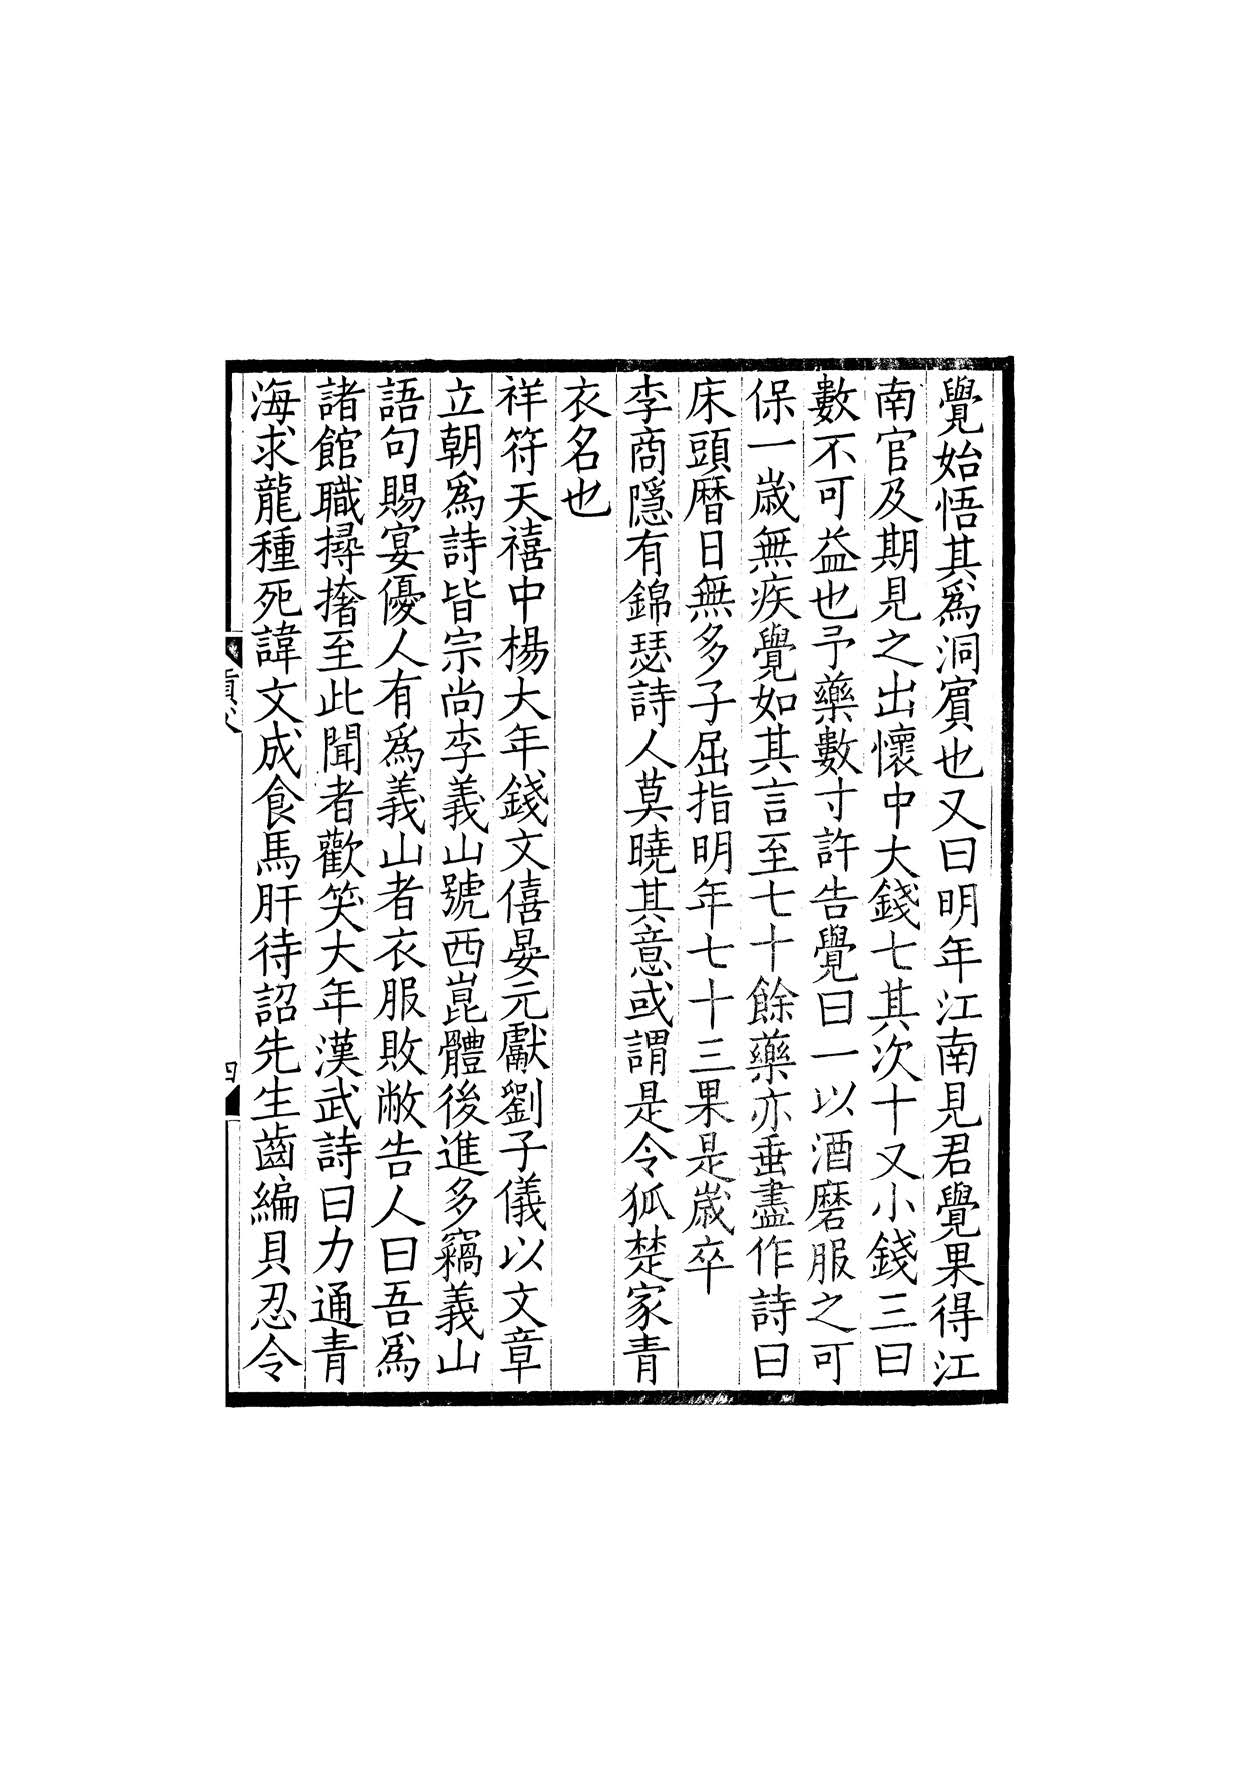 覺始悟其爲洞賓也又曰明年江南見君覺果得江
南官及期見之出懷中大錢七其次十又小錢三曰
數不可益也予藥數寸許告覺曰一以酒磨服之可
保一歲無疾覺如其言至七十餘藥亦垂盡作詩曰
床頭曆日無多子屈指明年七十三果是歲卒
李商隱有錦瑟詩人莫曉其意或謂是令狐楚家青
衣名也
祥符天禧中楊大年錢文僖晏元獻劉子儀以文章
立朝爲詩皆宗尚李義山號西崑體後進多竊義山
語句賜宴優人有爲義山者衣服敗敝告人曰吾爲
諸館職撏撦至此聞者歡笑大年漢武詩曰力通青
海求龍種死諱文成食馬肝待詔先生齒編貝忍令
四